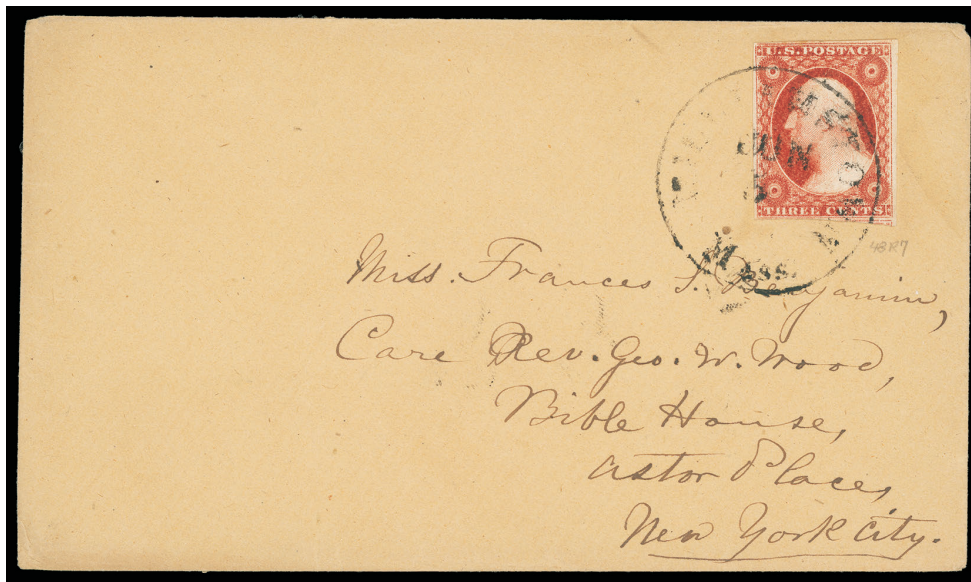 U.S. POSTAGE
THREE CENTS
JUN
5
Mass.
48R7
Miss. Frances S. Benjamin,
Care Rev. Geo. W. Wood,
Bible House,
Astor Place,
New York City.